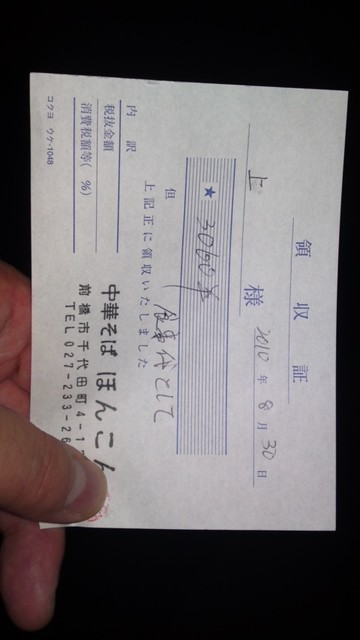 領収証
2010年8月30日
上 様
★ 3060円
但 食事代として
上記正に領収いたしました
内訳
税抜金額
消費税額等( %)
コクヨ ウケ-1048
中華そば ほんこん
前橋市千代田町4-1
TEL 027-233-26